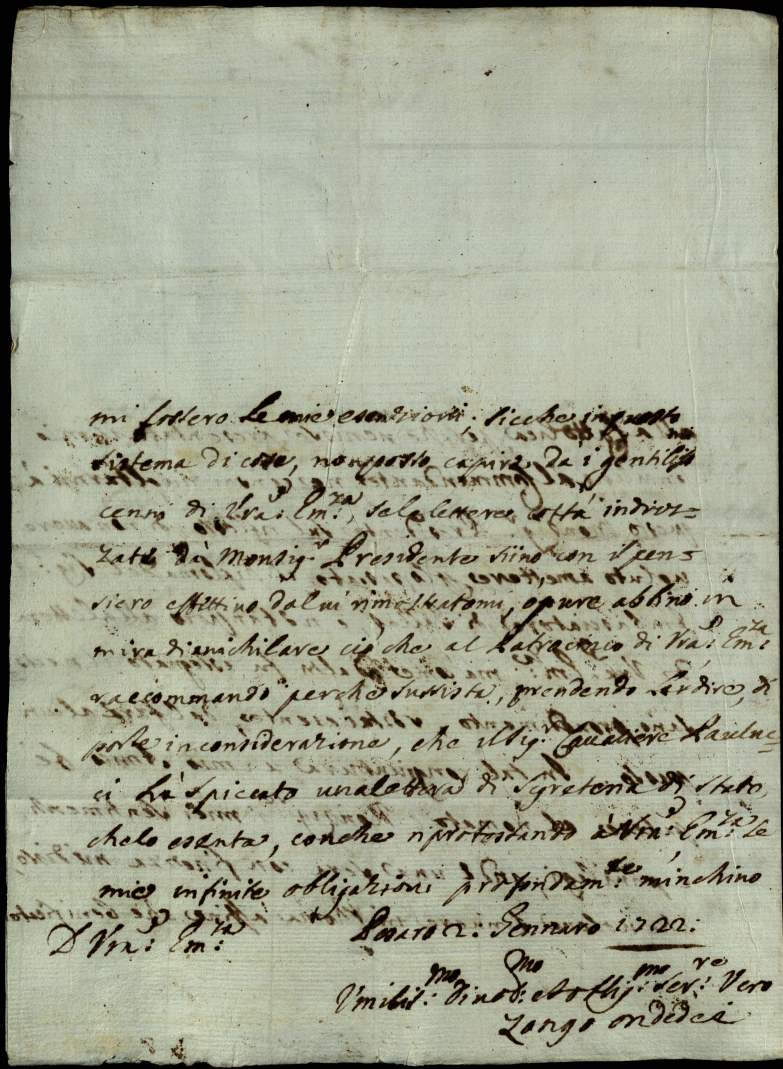 mi fossero le mie esenzioni; sicche in questo
sistema di cose, non posso capire da i gentiliss.mi
cenni di Vra: Em:za, se le lettere costà indiriz=
zate da Monsig.r Presidente siino con il pen=
siero effettivo da lui rimostratomi, opure abbino in
mira di anichilare ciò che al Patrocinio di Vra: Em:za
raccommando perche sussista, prendendo l'ardire, di
porle in considerazione, che il Sig. Cavaliere Pauluc=
ci hà spiccato una lettera di Sgreteria di Stato,
che lo esenta, con che riprotestando à Vra: Em:za le
mie infinite obligazioni profondam:te m'inchino
Pesaro 2: Gennaro 1722:
D Vra: Em:za
Vmilis:mo Divot:mo et Obblig:mo Ser:re Vero
Zongo Ondedei